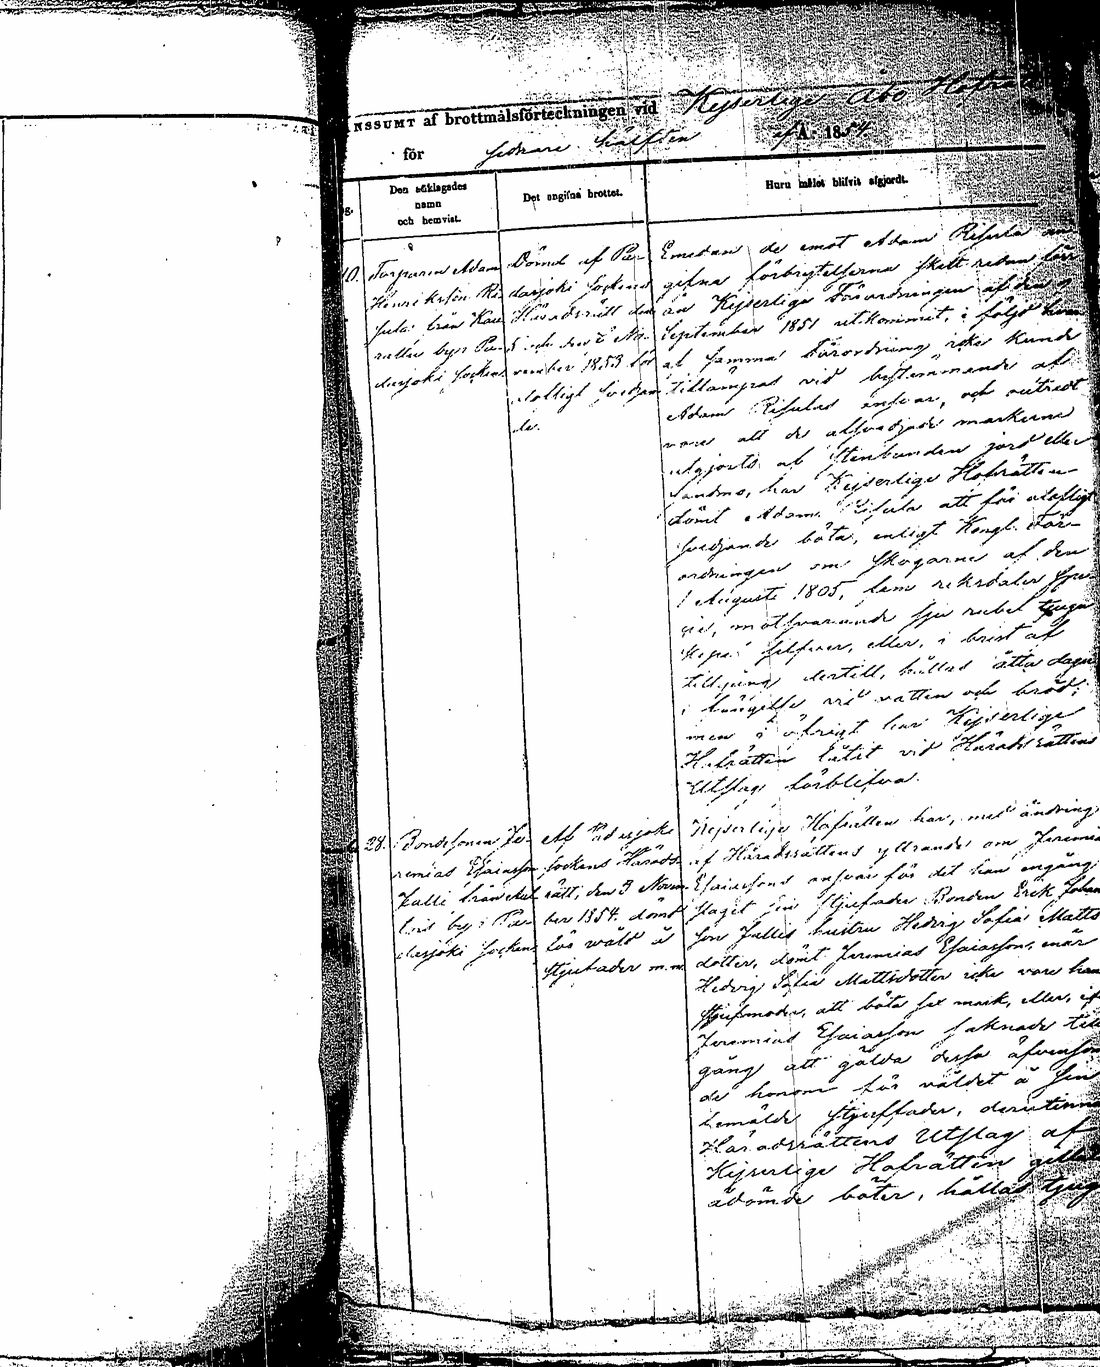 NSSUMT af brottmålsförteckningen vid Kejserliga Åbo Hofrätt
för senare hälften af Å. 1854
Den anklagades
namn
och hemvist.
Det angifna brottet.
Huru målet blifvit afgjordt.
10.
Torparen Adam
Henriksson Ri
sula från
by i Pa
dasjoki socken
Dömd af Pa-
dasjoki sockens
Häradsrätt den
5 och den 7 No-
vember 1853 för
olofligt svedjan
de.
Emedan de emot Adam Risula an
gifna förbrytelserna skett redan förr
än Kejserliga Förordningen af den 9
September 1851 utkommit, i följd hvar
af samma Förordning icke kunde
tillämpas vid bestämmande af
Adam Risulas ansvar, och utredt
vore att de afsvedjade markerna
utgjorts af stenbunden jord eller
sandmo, har Kejserliga Hofrätten
dömt Adam Risula att för olofligt
svedjande böta, enligt Kongl. För-
ordningen om skogarne af den
1 Augusti 1805, fem riksdaler spe-
cie, motsvarande sju rubel tjugu
kop. silfver, eller, i brist af
tillgång dertill, hållas åtta dagar
i fängelse vid vatten och bröd;
men i öfrigt har Kejserliga
Hofrätten låtit vid Häradsrättens
Utslag förblifva.
28.
Bondesonen Je-
remias Esaiasson
Jalli från
by i Pa-
dasjoki socken
Af Padasjoki
sockens Härads-
rätt, den 3 Novem
ber 1854 dömt
för våld å
styffader m.m.
Kejserliga Hofrätten har, med ändring
af Häradsrättens yttrande om Jeremias
Esaiassons ansvar för det han engång
slaget sin styffader Bonden Erik Johan
son Jallis hustru Hedvig Sofia Matts
dotter, dömt Jeremias Esaiasson, enär
Hedvig Sofia Mattsdotter icke vore hans
styfmoder, att böta sex mark, eller, ifall
Jeremias Esaiasson saknade till
gång att gälda dessa äfvensom
de honom för våldet å sin
bemälde styffader, derutinnan
Häradsrättens Utslag af
Kejserliga Hofrätten gillats
ådömde böter, hållas tjugu